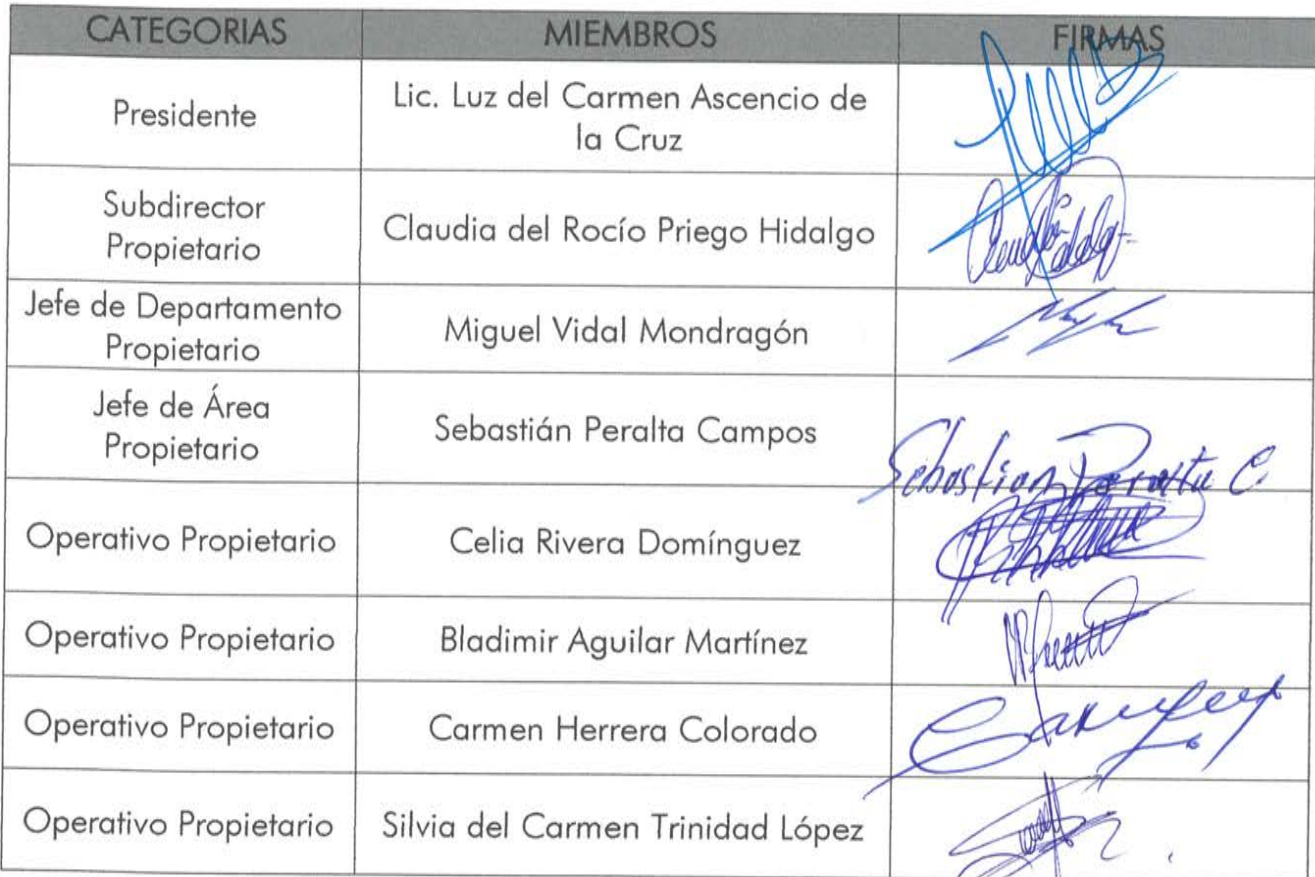 CATEGORIAS MIEMBROS FIRMAS
Presidente
Lic. Luz del Carmen Ascencio de
la Cruz
Subdirector
Propietario
Claudia del Rocío Priego Hidalgo
Jefe de Departamento
Propietario
Miguel Vidal Mondragón
Jefe de Área
Propietario
Sebastián Peralta Campos
Sebastian Peralta C.
Operativo Propietario
Celia Rivera Domínguez
Operativo Propietario
Bladimir Aguilar Martínez
Operativo Propietario
Carmen Herrera Colorado
Operativo Propietario
Silvia del Carmen Trinidad López